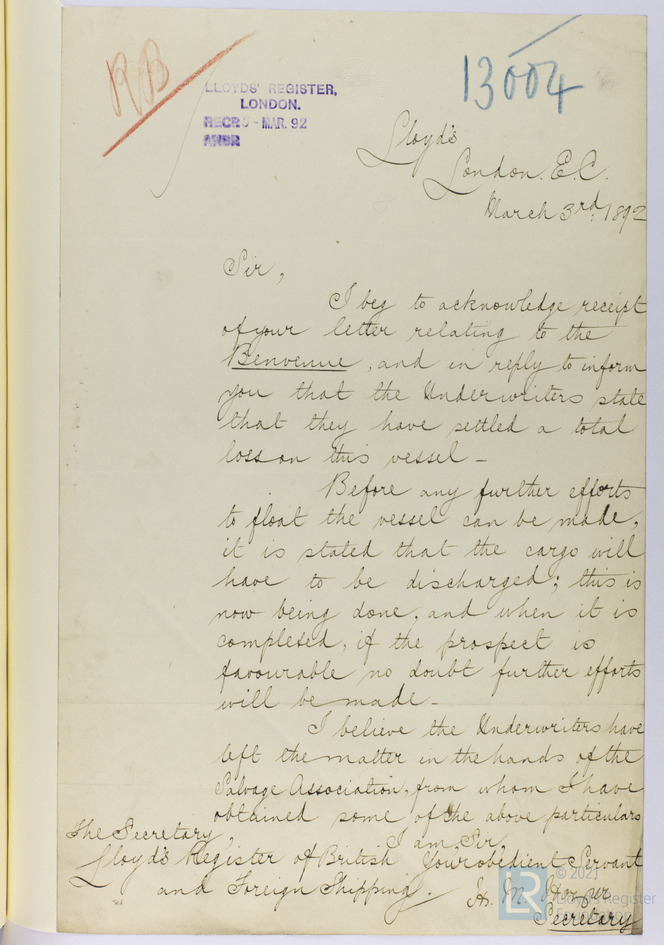 RB
13004
LLOYDS' REGISTER,
LONDON.
RECD 5 - MAR. 92
ANSR
Lloyd's
London. E.C.
March 3rd, 1892
Sir,
I beg to acknowledge receipt
of your letter relating to the
Benvenue, and in reply to inform
you that the Underwriters state
that they have settled a total
loss on this vessel -
Before any further efforts
to float the vessel can be made,
it is stated that the cargo will
have to be discharged; this is
now being done, and when it is
completed, if the prospect is
favourable no doubt further efforts
will be made -
I believe the Underwriters have
left the matter in the hands of the
Salvage Association, from whom I have
obtained some of the above particulars
I am, Sir,
Your obedient Servant
H. M. Hozier
Secretary
The Secretary,
Lloyd's Register of British
and Foreign Shipping.
LR
© 2021
Lloyd's Register